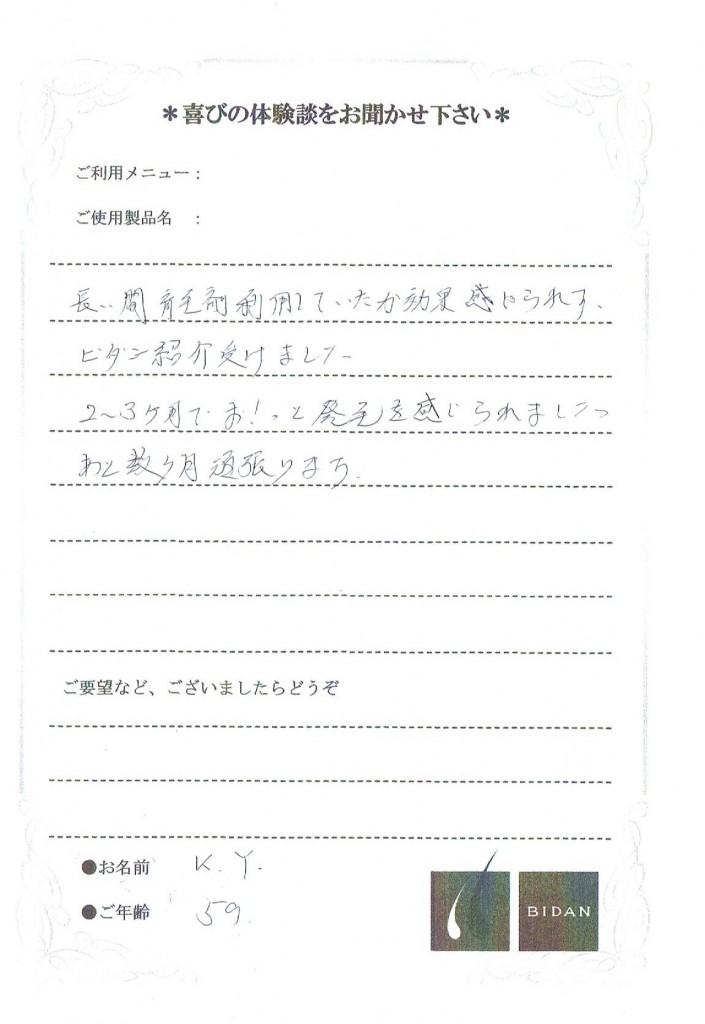 ＊喜びの体験談をお聞かせ下さい＊
ご利用メニュー：
ご使用製品名　：
長い間育毛剤利用していたが効果感じられず、
ビダン紹介受けました
2～3ヶ月でお!っと発毛を感じられました
あと数ヶ月頑張ります.
ご要望など、ございましたらどうぞ
●お名前　K.Y.
●ご年齢　59
BIDAN